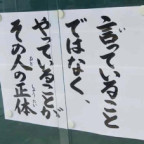 言っていること
ではなく、
やっていることが
その人の正体
しょうたい